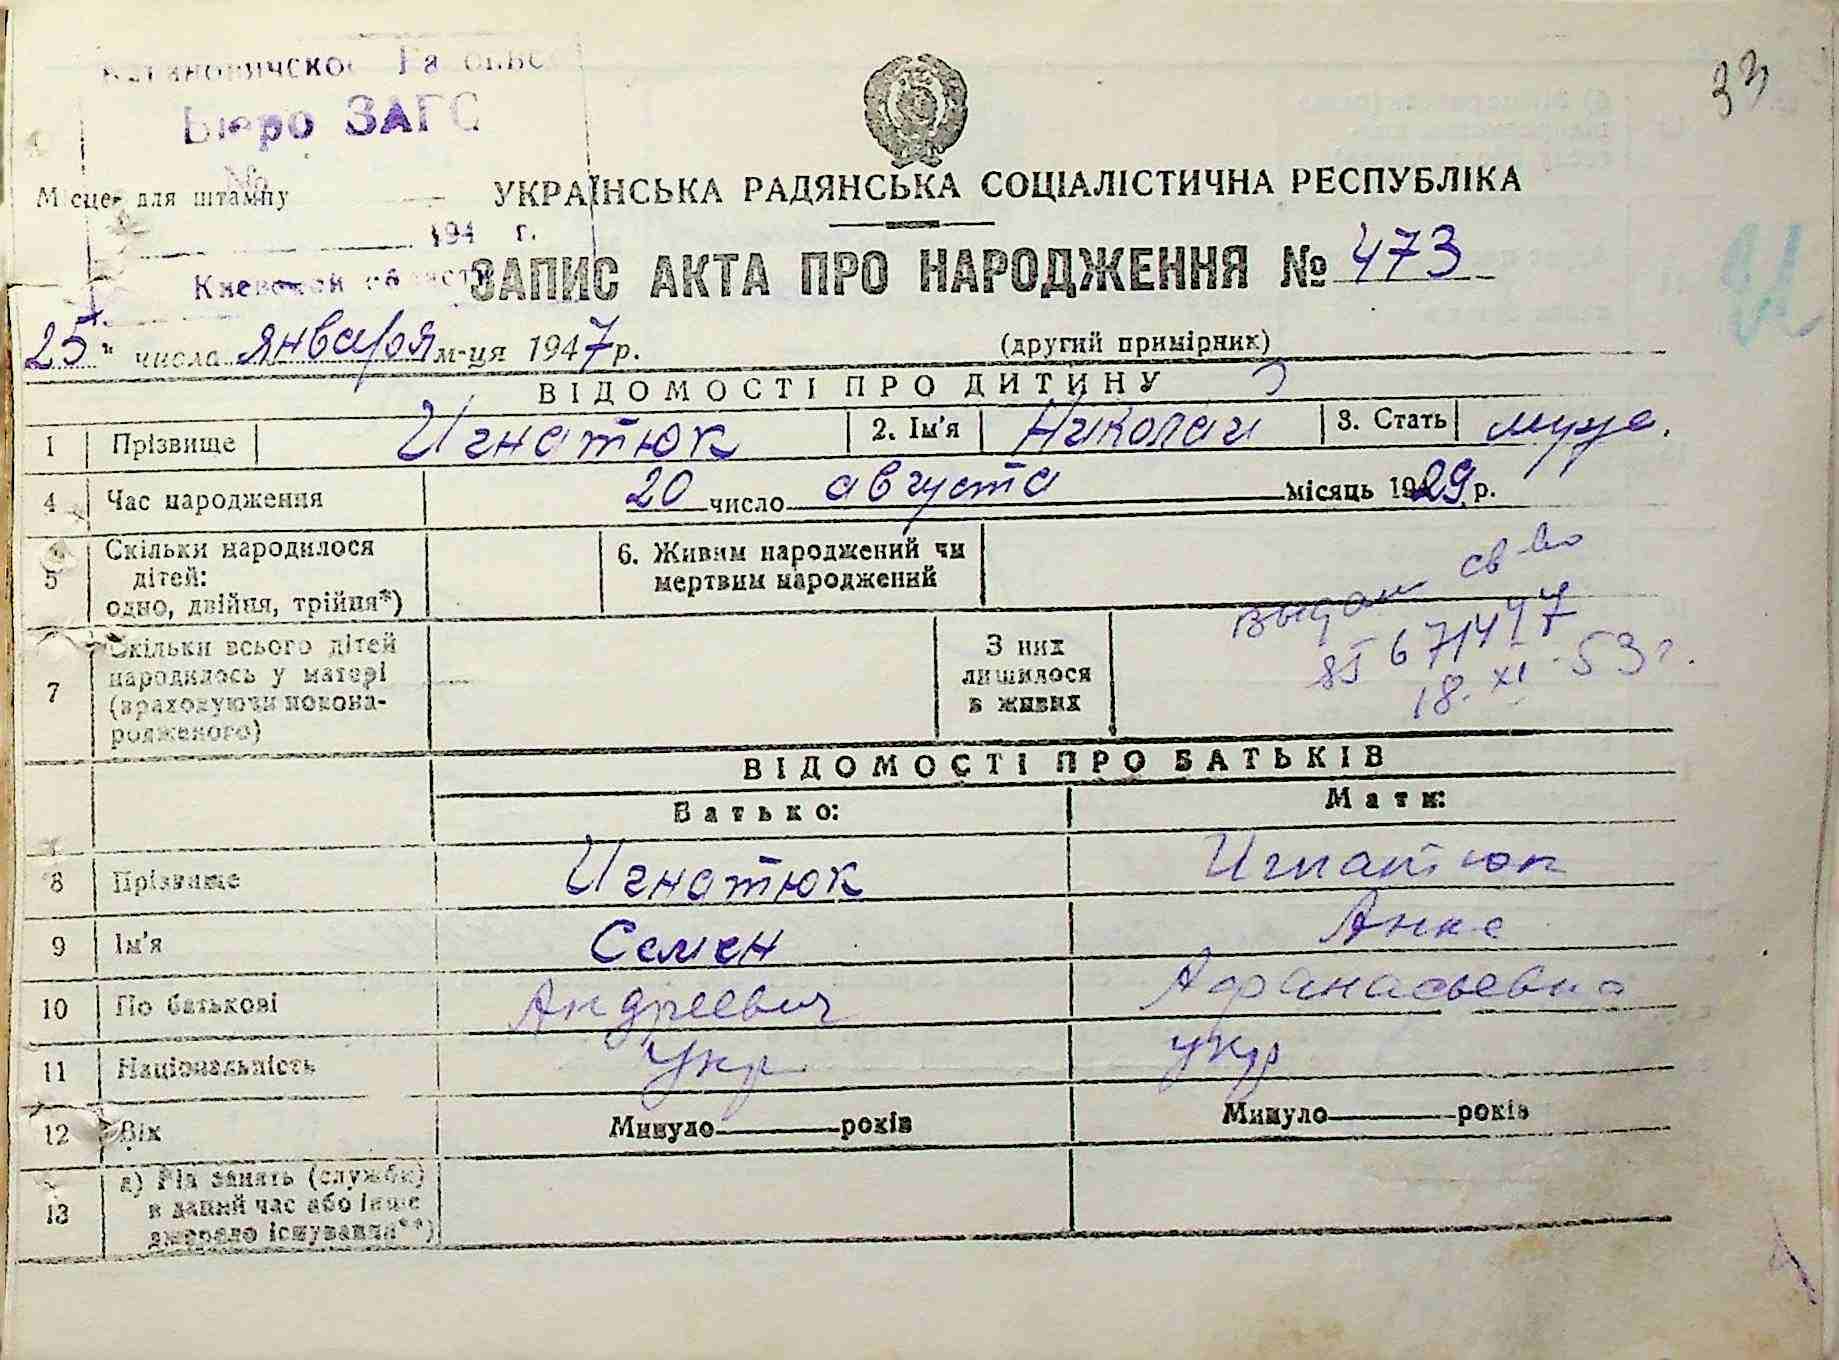 33
Бюро ЗАГС
№
Місце для штампу
194 г.
Киевской области
УКРАЇНСЬКА РАДЯНСЬКА СОЦІАЛІСТИЧНА РЕСПУБЛІКА
ЗАПИС АКТА ПРО НАРОДЖЕННЯ № 473
25 " числа января м-ця 1947 р.
(другий примірник)
ВІДОМОСТІ ПРО ДИТИНУ
1 Прізвище Игнатюк 2. Ім'я Николай 3. Стать муж.
4 Час народження 20 число августа місяць 1929 р.
5 Скільки народилося дітей: одно, двійня, трійня*)
6. Живим народжений чи мертвим народжений
выдан св во
7 Скільки всього дітей народилось у матері (враховуючи новонародженого) —
З них лишилося в живих
18. XI - 53 г.
ВІДОМОСТІ ПРО БАТЬКІВ
Батько: Мати:
8 Прізвище Игнатюк Игнатюк
9 Ім'я Семен Анна
10 По батькові Андреевич Афанасьевна
11 Національність Укр укр
12 Вік Минуло років Минуло років
13 а) Рід занять (служби) в даний час або інше джерело існування**)